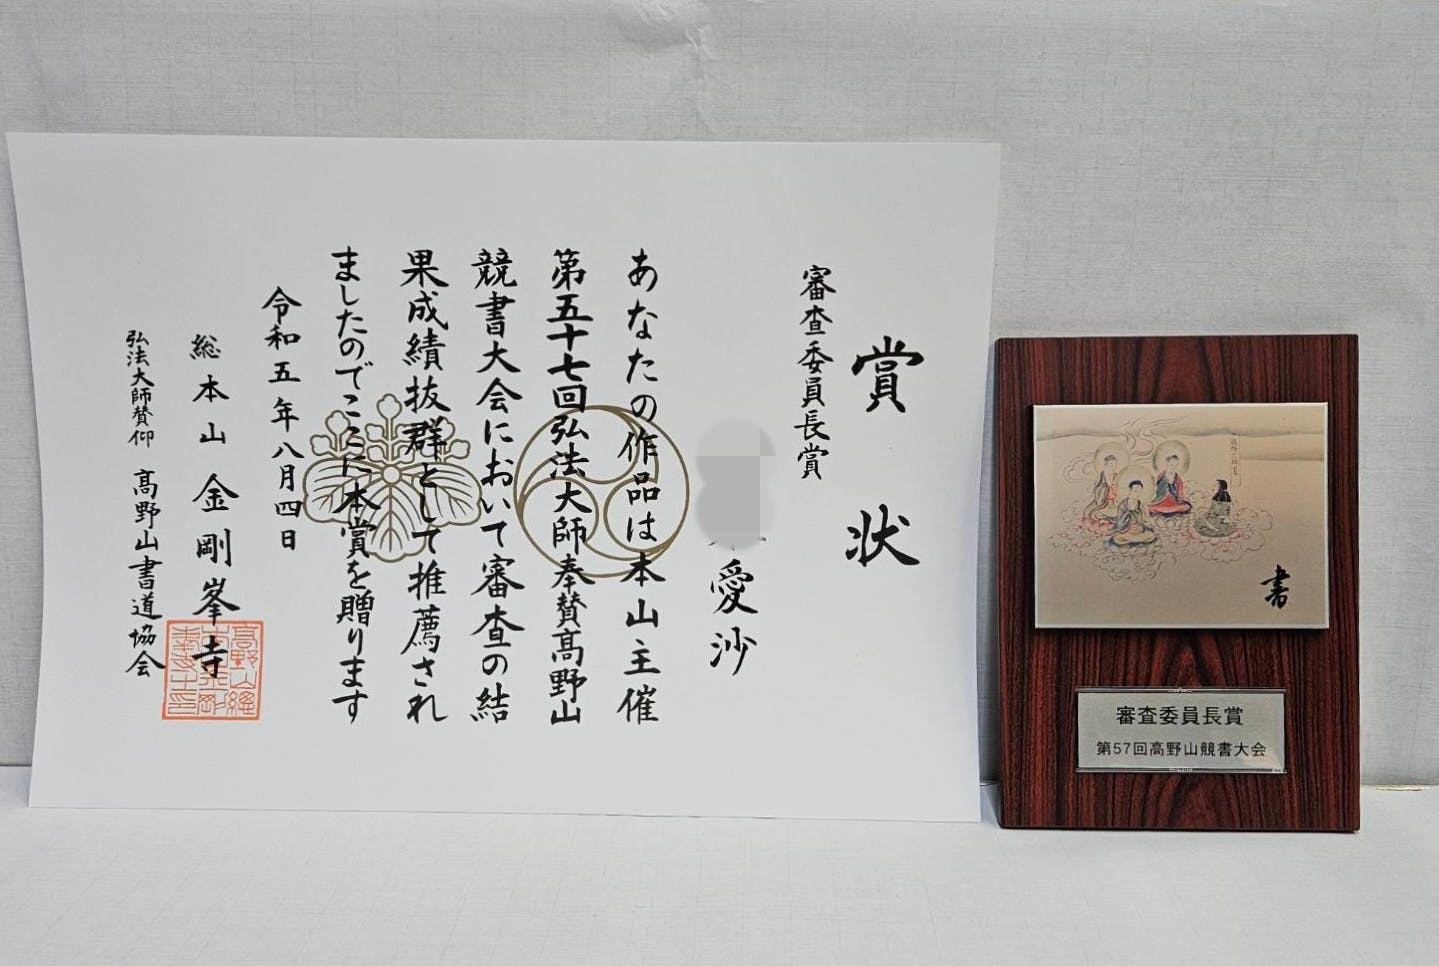 賞状
審査委員長賞
愛沙
あなたの作品は本山主催
第五十七回弘法大師奉賛高野山
競書大会において審査の結
果成績抜群として推薦され
ましたのでここに本賞を贈ります
令和五年八月四日
総本山 金剛峯寺
弘法大師賛仰 高野山書道協会
書
審査委員長賞
第57回高野山競書大会